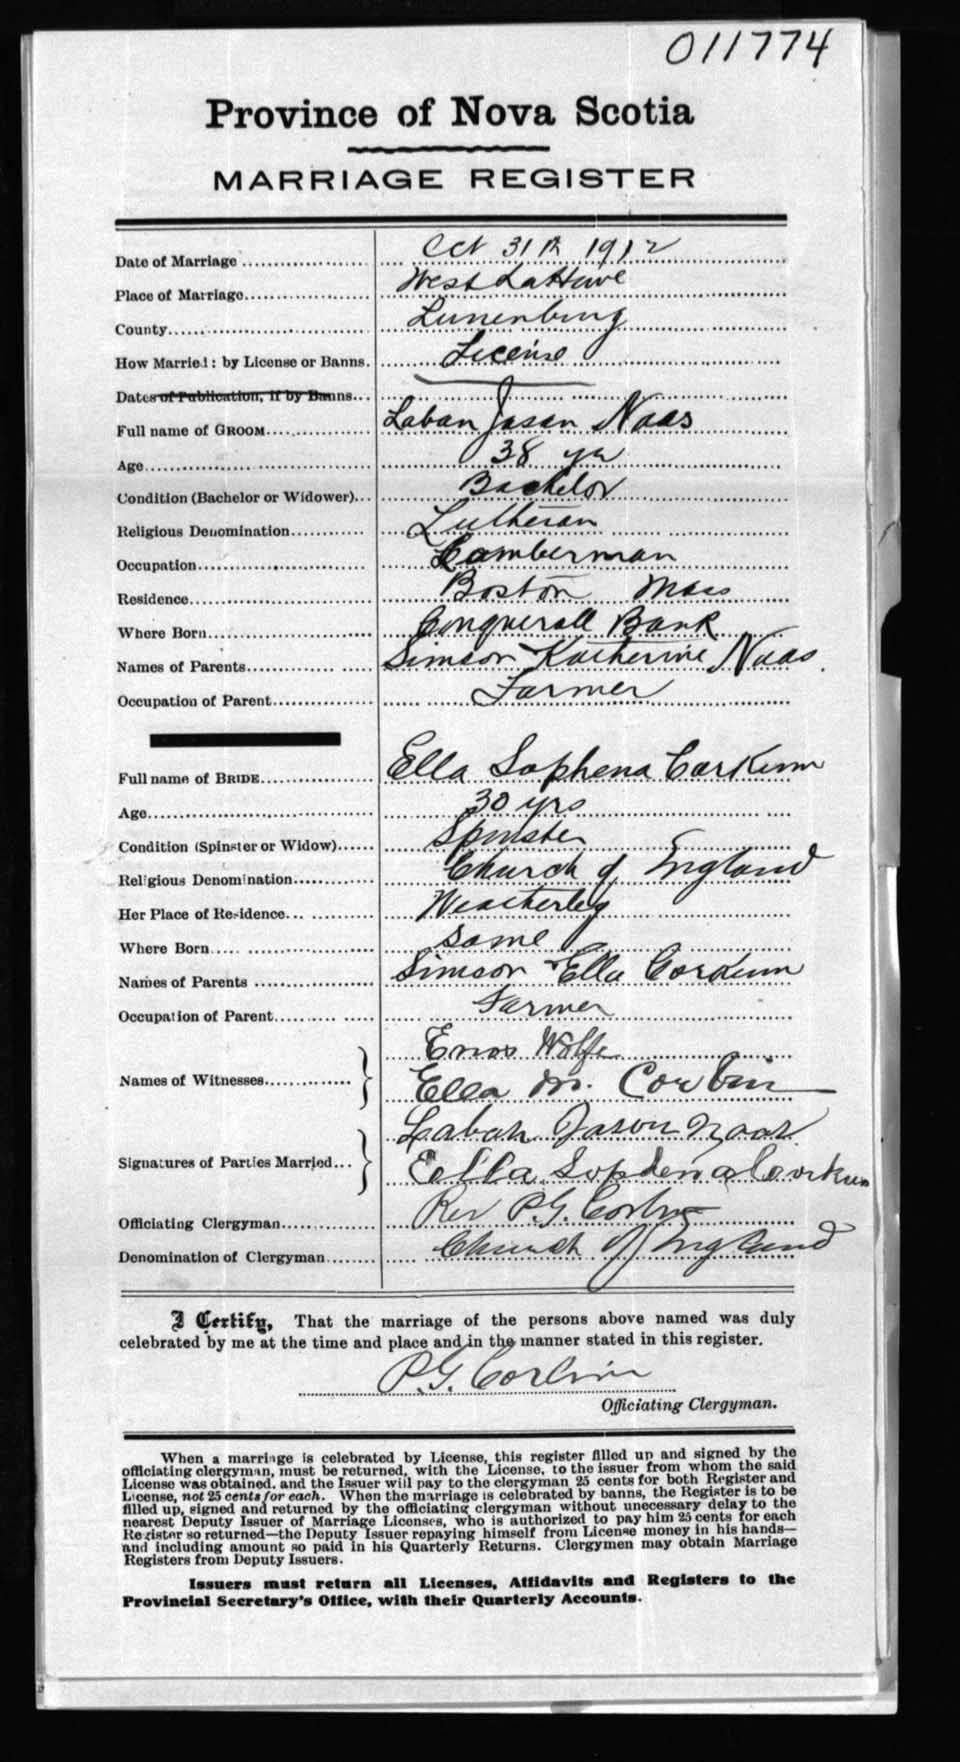 011774
Province of Nova Scotia
MARRIAGE REGISTER
Date of Marriage Oct 31th 1912
Place of Marriage West LaHave
County Lunenburg
How Married: by License or Banns. License
Dates of Publication, if by Banns
Full name of GROOM Laban Jason Naas
Age 38 yrs
Condition (Bachelor or Widower) Bachelor
Religious Denomination Lutheran
Occupation Lumberman
Residence Boston Mass
Where Born Conquerall Bank
Names of Parents Simeon Katherine Naas.
Occupation of Parent Farmer
Full name of BRIDE Ella Sophena Corkum
Age 30 yrs
Condition (Spinster or Widow) Spinster
Religious Denomination Church of England
Her Place of Residence
Where Born same
Names of Parents Simeon Ella Corkum
Occupation of Parent Farmer
Enos Wolfe
Names of Witnesses
Ella M. Corbin
Laban Jason Naas.
Signatures of Parties Married
Ella Sophena Corkum
Officiating Clergyman Rev P.G. Corbin
Denomination of Clergyman Church of England
I Certify, That the marriage of the persons above named was duly
celebrated by me at the time and place and in the manner stated in this register.
P.G. Corbin
Officiating Clergyman.
When a marriage is celebrated by License, this register filled up and signed by the
officiating clergyman, must be returned, with the License, to the issuer from whom the said
License was obtained. and the Issuer will pay to the clergyman 25 cents for both Register and
License, not 25 cents for each. When the marriage is celebrated by banns, the Register is to be
filled up, signed and returned by the officiating clergyman without unnecessary delay to the
nearest Deputy Issuer of Marriage Licenses, who is authorized to pay him 25 cents for each
Register so returned—the Deputy Issuer repaying himself from License money in his hands—
and including amount so paid in his Quarterly Returns. Clergymen may obtain Marriage
Registers from Deputy Issuers.
Issuers must return all Licenses, Affidavits and Registers to the
Provincial Secretary's Office, with their Quarterly Accounts.